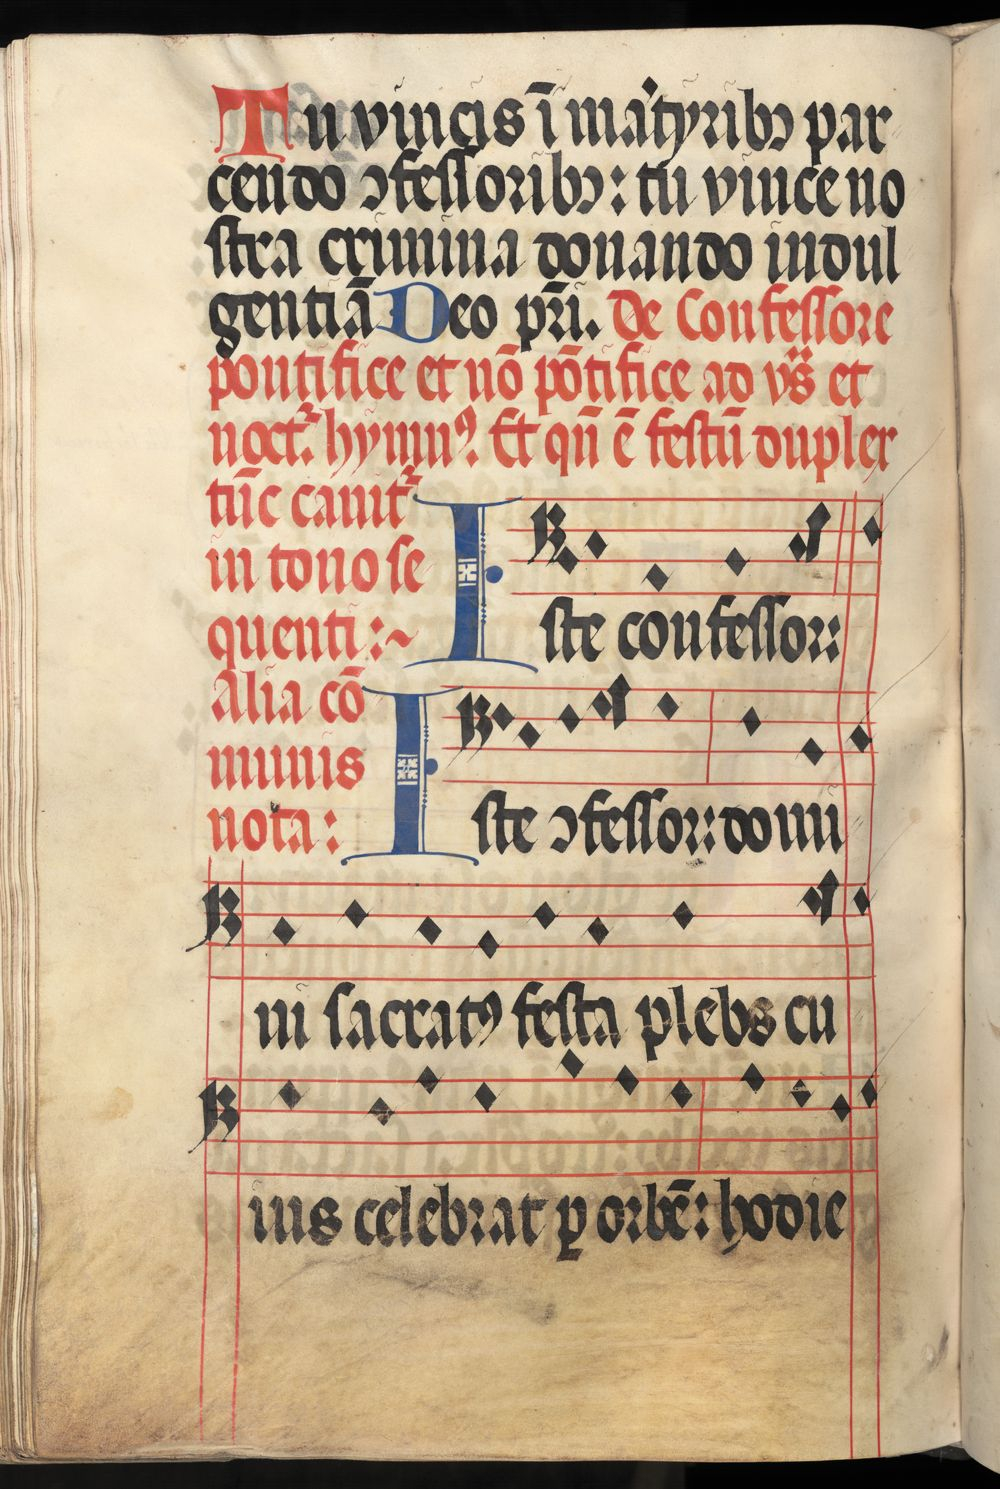 Tu vincis ī mártyribꝫ par
cendo ↄfessoribꝫ: tu vince no
stra crimina donando indul
gentiā Deo pr̄i. De Confessore
pontifice et nō pōtifice ad vs̄ et
noct᷑. hymnꝰ. Et qn̄ ē festū duplex
tūc canit᷑
in tono se
quenti :~
Iste confessor:
Alia cō
munis
nota:
Iste ↄfessor: domi
ni sacratꝰ festa plebs cu
ius celebrat ꝑ orbē: hodie